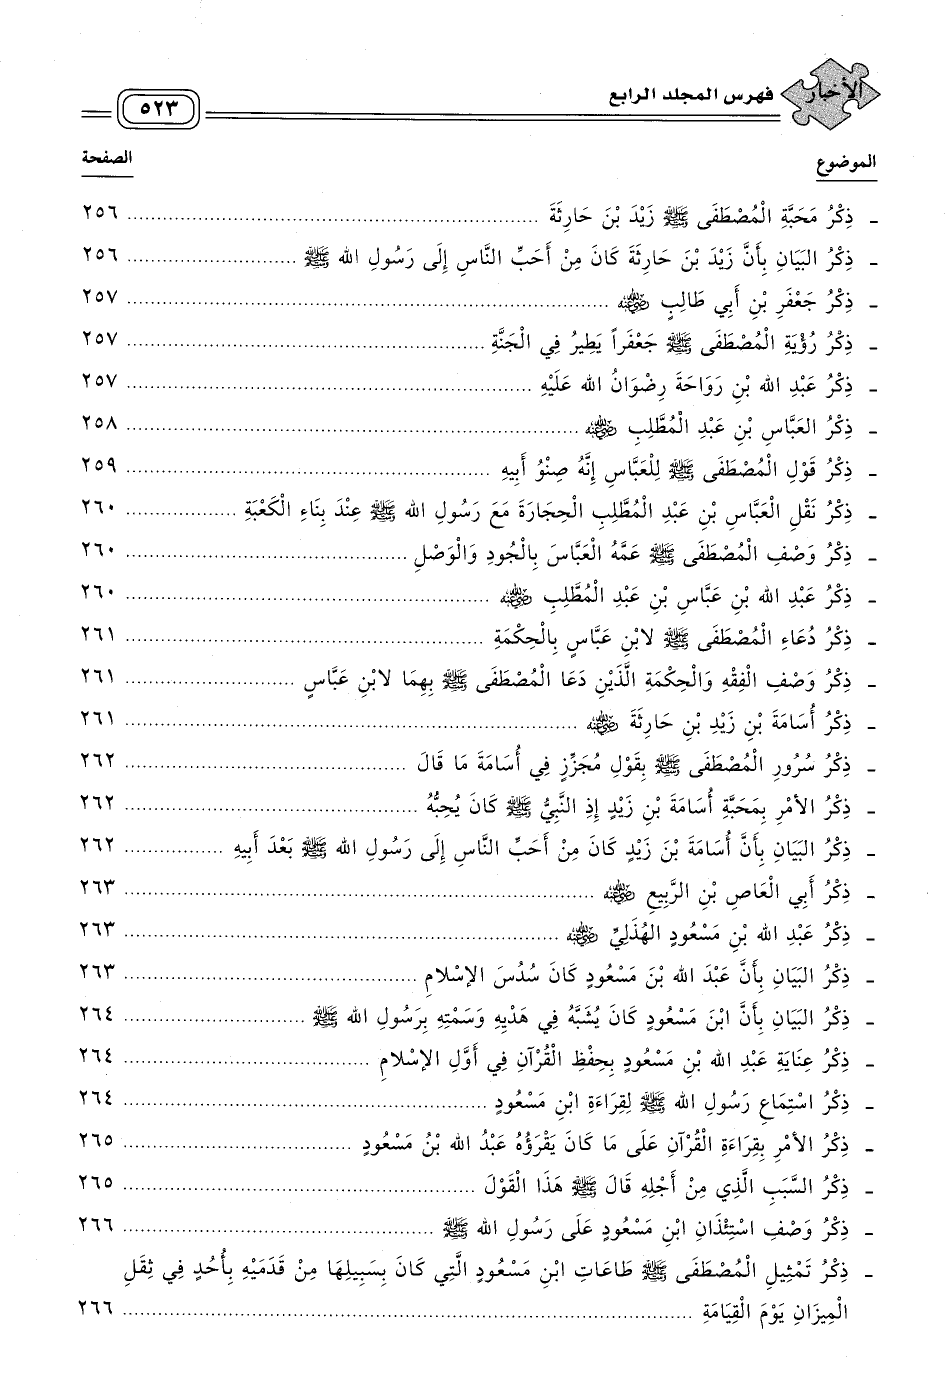 الأخبار
فهرس المجلد الرابع
٥٢٣
الموضوع الصفحة
- ذِكْرُ مَحَبَّةِ الْمُصْطَفَى ﷺ زَيْدَ بْنَ حَارِثَةَ ........ ٢٥٦
- ذِكْرُ البَيَانِ بِأَنَّ زَيْدَ بْنَ حَارِثَةَ كَانَ مِنْ أَحَبِّ النَّاسِ إِلَى رَسُولِ الله ﷺ ........ ٢٥٦
- ذِكْرُ جَعْفَرِ بْنِ أَبِي طَالِبٍ رضي الله عنه ........ ٢٥٧
- ذِكْرُ رُؤْيَةِ الْمُصْطَفَى ﷺ جَعْفَراً يَطِيرُ فِي الْجَنَّةِ ........ ٢٥٧
- ذِكْرُ عَبْدِ الله بْنِ رَوَاحَةَ رِضْوَانُ الله عَلَيْهِ ........ ٢٥٧
- ذِكْرُ العَبَّاسِ بْنِ عَبْدِ الْمُطَّلِبِ رضي الله عنه ........ ٢٥٨
- ذِكْرُ قَوْلِ الْمُصْطَفَى ﷺ لِلْعَبَّاسِ إِنَّهُ صِنْوُ أَبِيهِ ........ ٢٥٩
- ذِكْرُ نَقْلِ الْعَبَّاسِ بْنِ عَبْدِ الْمُطَّلِبِ الْحِجَارَةَ مَعَ رَسُولِ الله ﷺ عِنْدَ بِنَاءِ الْكَعْبَةِ ........ ٢٦٠
- ذِكْرُ وَصْفِ الْمُصْطَفَى ﷺ عَمَّهُ الْعَبَّاسَ بِالْجُودِ وَالْوَصْلِ ........ ٢٦٠
- ذِكْرُ عَبْدِ الله بْنِ عَبَّاسِ بْنِ عَبْدِ الْمُطَّلِبِ رضي الله عنه ........ ٢٦٠
- ذِكْرُ دُعَاءِ الْمُصْطَفَى ﷺ لابْنِ عَبَّاسٍ بِالْحِكْمَةِ ........ ٢٦١
- ذِكْرُ وَصْفِ الْفِقْهِ وَالْحِكْمَةِ الَّذَيْنِ دَعَا الْمُصْطَفَى ﷺ بِهِمَا لابْنِ عَبَّاسٍ ........ ٢٦١
- ذِكْرُ أُسَامَةَ بْنِ زَيْدِ بْنِ حَارِثَةَ رضي الله عنه ........ ٢٦١
- ذِكْرُ سُرُورِ الْمُصْطَفَى ﷺ بِقَوْلِ مُجَزِّزٍ فِي أُسَامَةَ مَا قَالَ ........ ٢٦٢
- ذِكْرُ الأمْرِ بِمَحَبَّةِ أُسَامَةَ بْنِ زَيْدٍ إِذِ النَّبِيُّ ﷺ كَانَ يُحِبُّهُ ........ ٢٦٢
- ذِكْرُ البَيَانِ بِأَنَّ أُسَامَةَ بْنَ زَيْدٍ كَانَ مِنْ أَحَبِّ النَّاسِ إِلَى رَسُولِ الله ﷺ بَعْدَ أَبِيهِ ........ ٢٦٢
- ذِكْرُ أَبِي الْعَاصِ بْنِ الرَّبِيعِ رضي الله عنه ........ ٢٦٣
- ذِكْرُ عَبْدِ الله بْنِ مَسْعُودٍ الهُذَلِيِّ رضي الله عنه ........ ٢٦٣
- ذِكْرُ البَيَانِ بِأَنَّ عَبْدَ الله بْنَ مَسْعُودٍ كَانَ سُدُسَ الإسْلامِ ........ ٢٦٣
- ذِكْرُ البَيَانِ بِأَنَّ ابْنَ مَسْعُودٍ كَانَ يُشَبَّهُ فِي هَدْيِهِ وَسَمْتِهِ بِرَسُولِ الله ﷺ ........ ٢٦٤
- ذِكْرُ عِنَايَةِ عَبْدِ الله بْنِ مَسْعُودٍ بِحِفْظِ الْقُرْآنِ فِي أَوَّلِ الإسْلامِ ........ ٢٦٤
- ذِكْرُ اسْتِمَاعِ رَسُولِ الله ﷺ لِقِرَاءَةِ ابْنِ مَسْعُودٍ ........ ٢٦٤
- ذِكْرُ الأمْرِ بِقِرَاءَةِ الْقُرْآنِ عَلَى مَا كَانَ يَقْرَؤُهُ عَبْدُ الله بْنُ مَسْعُودٍ ........ ٢٦٥
- ذِكْرُ السَّبَبِ الَّذِي مِنْ أَجْلِهِ قَالَ ﷺ هَذَا الْقَوْلَ ........ ٢٦٥
- ذِكْرُ وَصْفِ اسْتِئْذَانِ ابْنِ مَسْعُودٍ عَلَى رَسُولِ الله ﷺ ........ ٢٦٦
- ذِكْرُ تَمْثِيلِ الْمُصْطَفَى ﷺ طَاعَاتِ ابْنِ مَسْعُودٍ الَّتِي كَانَ بِسَبِيلِهَا مِنْ قَدَمَيْهِ بِأُحُدٍ فِي ثِقَلِ
الْمِيزَانِ يَوْمَ الْقِيَامَةِ ........ ٢٦٦